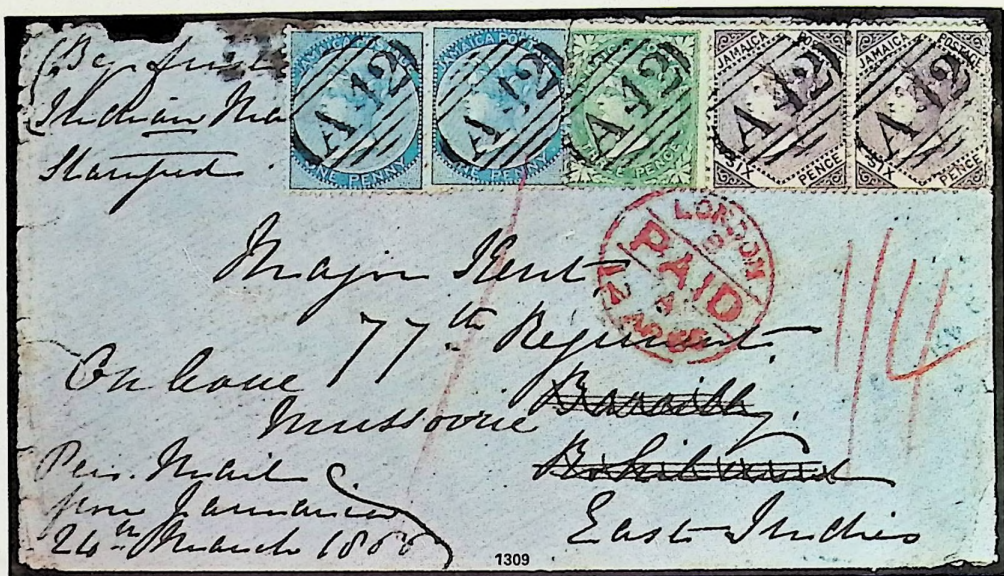 Indian
Stamped
JAMAICA POSTAGE
ONE PENNY
A 42
JAMAICA POSTAGE
ONE PENNY
A 42
PENCE
A 42
JAMAICA POSTAGE
SIX PENCE
A 42
JAMAICA POSTAGE
SIX PENCE
A 42
LONDON
PAID
1/4
Major Kent
77th Regiment
On leave
Mussoorie Bareilly
Rohilcund
East Indies
Per. Mail
from Jamaica
24th March 1866
1309